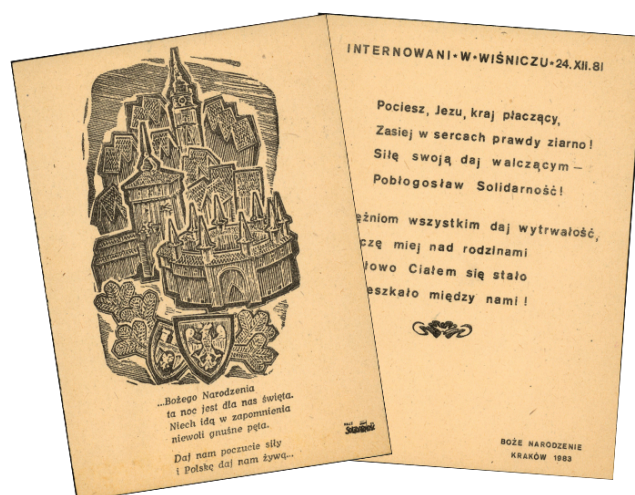 ...Bożego Narodzenia
ta noc jest dla nas święta.
Niech idą w zapomnienia
niewoli gnuśne pęta.
Daj nam poczucie siły
i Polskę daj nam żywą...
Solidarność
INTERNOWANI • W • WIŚNICZU • 24. XII. 81
Pociesz, Jezu, kraj płaczący,
Zasiej w sercach prawdy ziarno !
Siłę swoją daj walczącym –
Pobłogosław Solidarność !
ęźniom wszystkim daj wytrwałość,
czę miej nad rodzinami
łowo Ciałem się stało
eszkało między nami !
BOŻE NARODZENIE
KRAKÓW 1983